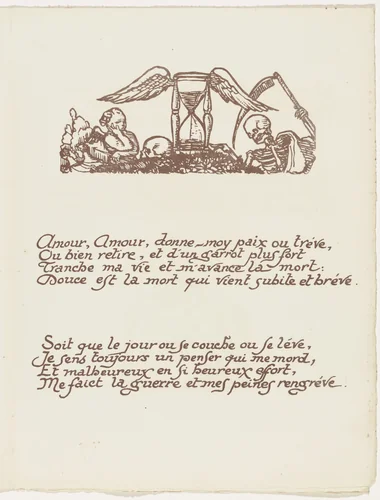 Amour, Amour, donne-moy paix ou tréve,
Ou bien retire, et d'un garrot plus fort
Tranche ma vie et m'avance la mort:
Douce est la mort qui vient subite et bréve.
Soit que le jour ou se couche ou se léve,
Je sens toujours un penser qui me mord,
Et malheureux en si heureux effort,
Me faict la guerre et mes peines rengréve.